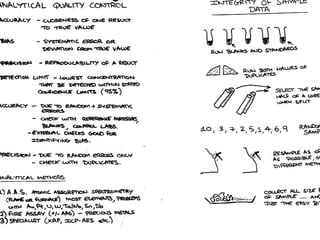 ANALYTICAL QUALITY CONTROL
ACCURACY - CLOSENESS OF ONE RESULT
TO TRUE VALUE
BIAS - SYSTEMATIC ERROR OR
DEVIATION FROM TRUE VALUE
PRECISION - REPRODUCABILITY OF A RESULT
DETECTION LIMIT - LOWEST CONCENTRATION
THAT BE DETECTED WITHIN STATED
CONFIDENCE LIMITS (95%)
ACCURACY - DUE TO RANDOM + SYSTEMATIC
ERRORS
- CHECK WITH REFERENCE MATERIALS,
BLANKS, CONTROL LABS.
- EXTERNAL CHECKS GOOD FOR
IDENTIFYING BIAS.
PRECISION - DUE TO RANDOM ERRORS ONLY
- CHECK WITH DUPLICATES.
ANALYTICAL METHODS
1) A.A.S. ATOMIC ABSORPTION SPECTROMETRY
(FLAME OR FURNACE) MOST ELEMENTS, PROBLEMS
WITH Au, Pt, U, W, Ta/Nb, Sn, Sb
2) FIRE ASSAY (+/- AAS) - PRECIOUS METALS
3) SPECIALIST (XRF, ICP-AES etc.)
INTEGRITY OF SAMPLE
DATA
RUN BLANKS AND STANDARDS
RUN BOTH HALVES OF
DUPLICATES
SELECT THE SAM
HALF OF A CORE
WHEN SPLIT
10, 3, 7, 2, 5, 1, 4, 6, 9 RANDO
SAM
RESAMPLE AS OF
AS POSSIBLE, U
DIFFERENT METH
COLLECT ALL SIZE F
OF SAMPLE ... AND
THE EASY B